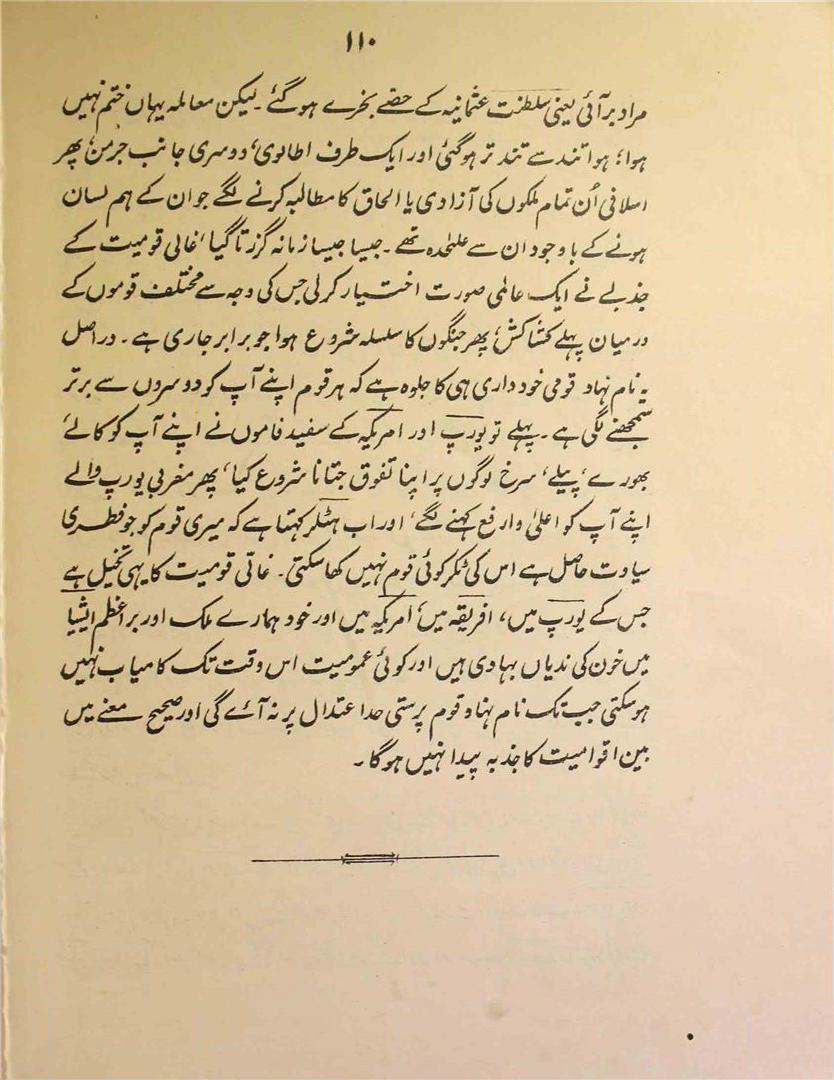 ۱۱۰
مراد بر آئی یعنی سلطنت عثمانیہ کے حصے بخرے ہو گئے۔ لیکن معاملہ یہاں ختم نہیں
ہوا؛ ہوا تند سے تند تر ہو گئی اور ایک طرف اطالوی، دوسری جانب جرمن، پھر
اسلافی اُن تمام ملکوں کی آزادی یا الحاق کا مطالبہ کرنے لگے جو ان کے ہم لسان
ہونے کے باوجود ان سے علٰحدہ تھے۔ جیسا جیسا زمانہ گزرتا گیا، غالی قومیت کے
جذبے نے ایک عالمی صورت اختیار کر لی جس کی وجہ سے مختلف قوموں کے
درمیان پہلے کشاکش، پھر جنگوں کا سلسلہ شروع ہوا جو برابر جاری ہے۔ دراصل
یہ نام نہاد قومی خودداری ہی کا جلوہ ہے کہ ہر قوم اپنے آپ کو دوسروں سے برتر
سمجھنے لگی ہے۔ پہلے تو یورپ اور امریکہ کے سفید فاموں نے اپنے آپ کو کالے،
بھورے، پیلے، سرخ لوگوں پر اپنا تفوق جتانا شروع کیا، پھر مغربی یورپ والے
اپنے آپ کو اعلیٰ وارفع کہنے لگے، اور اب ہٹلر کہتا ہے کہ میری قوم کو جو فطری
سیادت حاصل ہے اس کی ٹکر کوئی قوم نہیں کھا سکتی۔ غالی قومیت کا یہی تخیل ہے
جس کے یورپ میں، افریقہ میں، امریکہ میں اور خود ہمارے ملک اور براعظم ایشیا
میں خون کی ندیاں بہا دی ہیں اور کوئی عمومیت اس وقت تک کامیاب نہیں
ہو سکتی جب تک نام نہاد قوم پرستی حد اعتدال پر نہ آئے گی اور صحیح معنے میں
بین اقوامیت کا جذبہ پیدا نہیں ہوگا۔